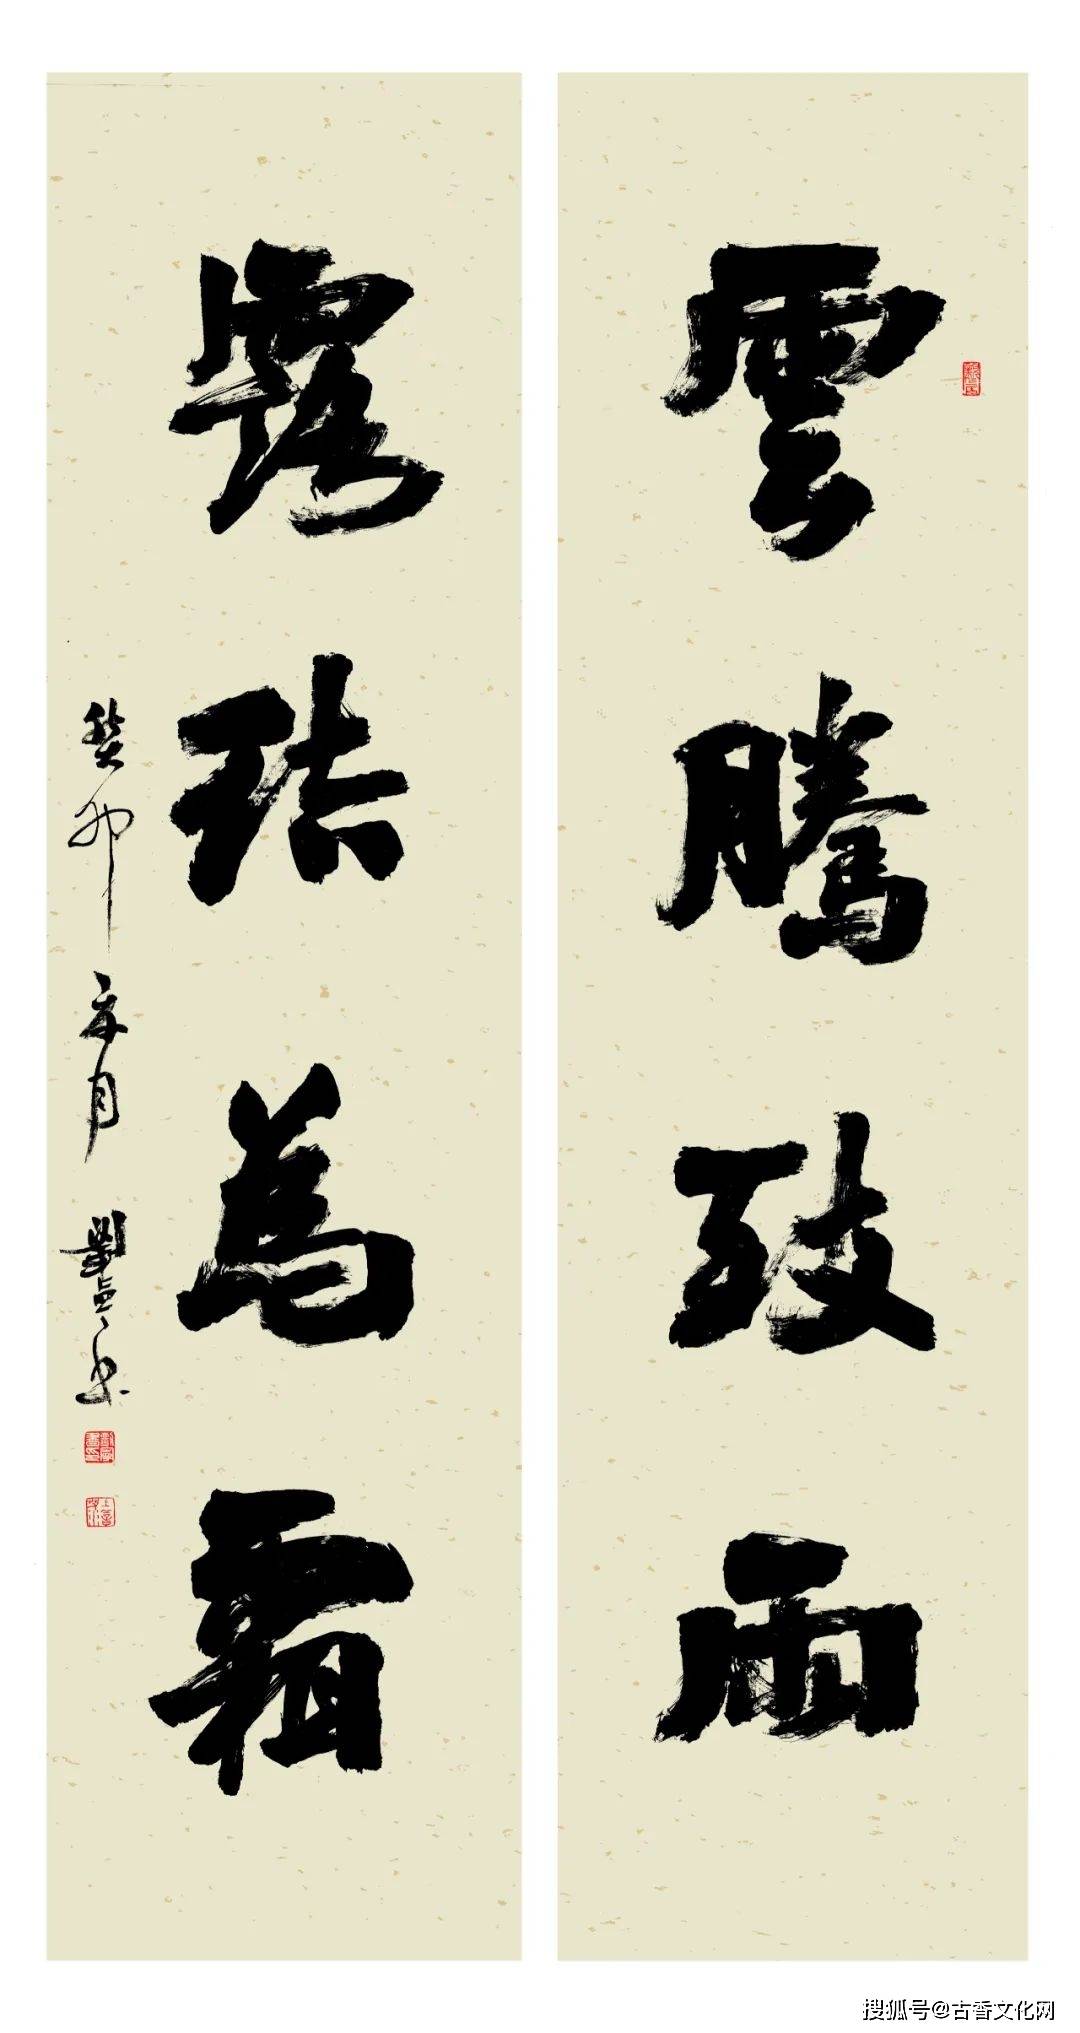 雲騰致雨
露結為霜
癸卯 月 劉 書
搜狐号@古香文化网